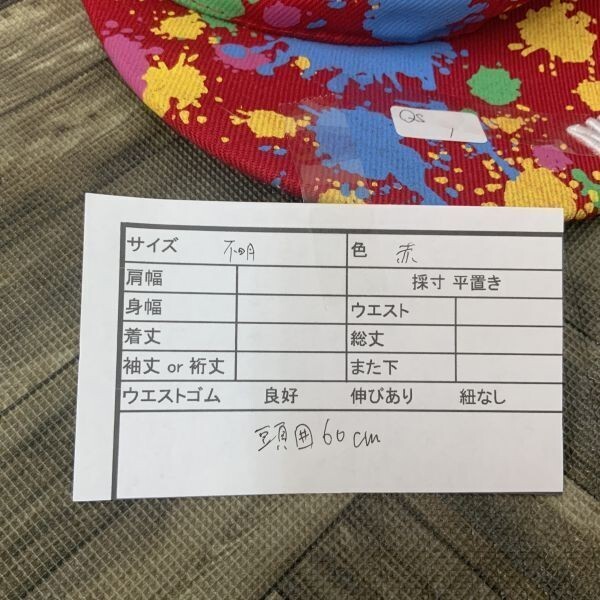 QS
1
サイズ 不明 色 赤
肩幅 採寸 平置き
身幅 ウエスト
着丈 総丈
袖丈 or 裄丈 また下
ウエストゴム 良好 伸びあり 紐なし
頭囲 60cm